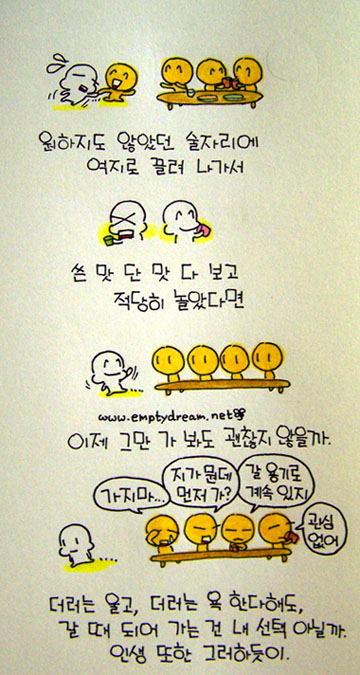 원하지도 않았던 술자리에
여지로 끌려 나가서
쓴 맛 단 맛 다 보고
적당히 놀았다면
www.emptydream.net
이제 그만 가 봐도 괜찮지 않을까.
가지마...
지가 뭔데
먼저 가?
갈 용기로
계속 있지
관심
없어
더러는 울고, 더러는 욕 한다해도,
갈 때 되어 가는 건 내 선택 아닐까.
인생 또한 그러하듯이.